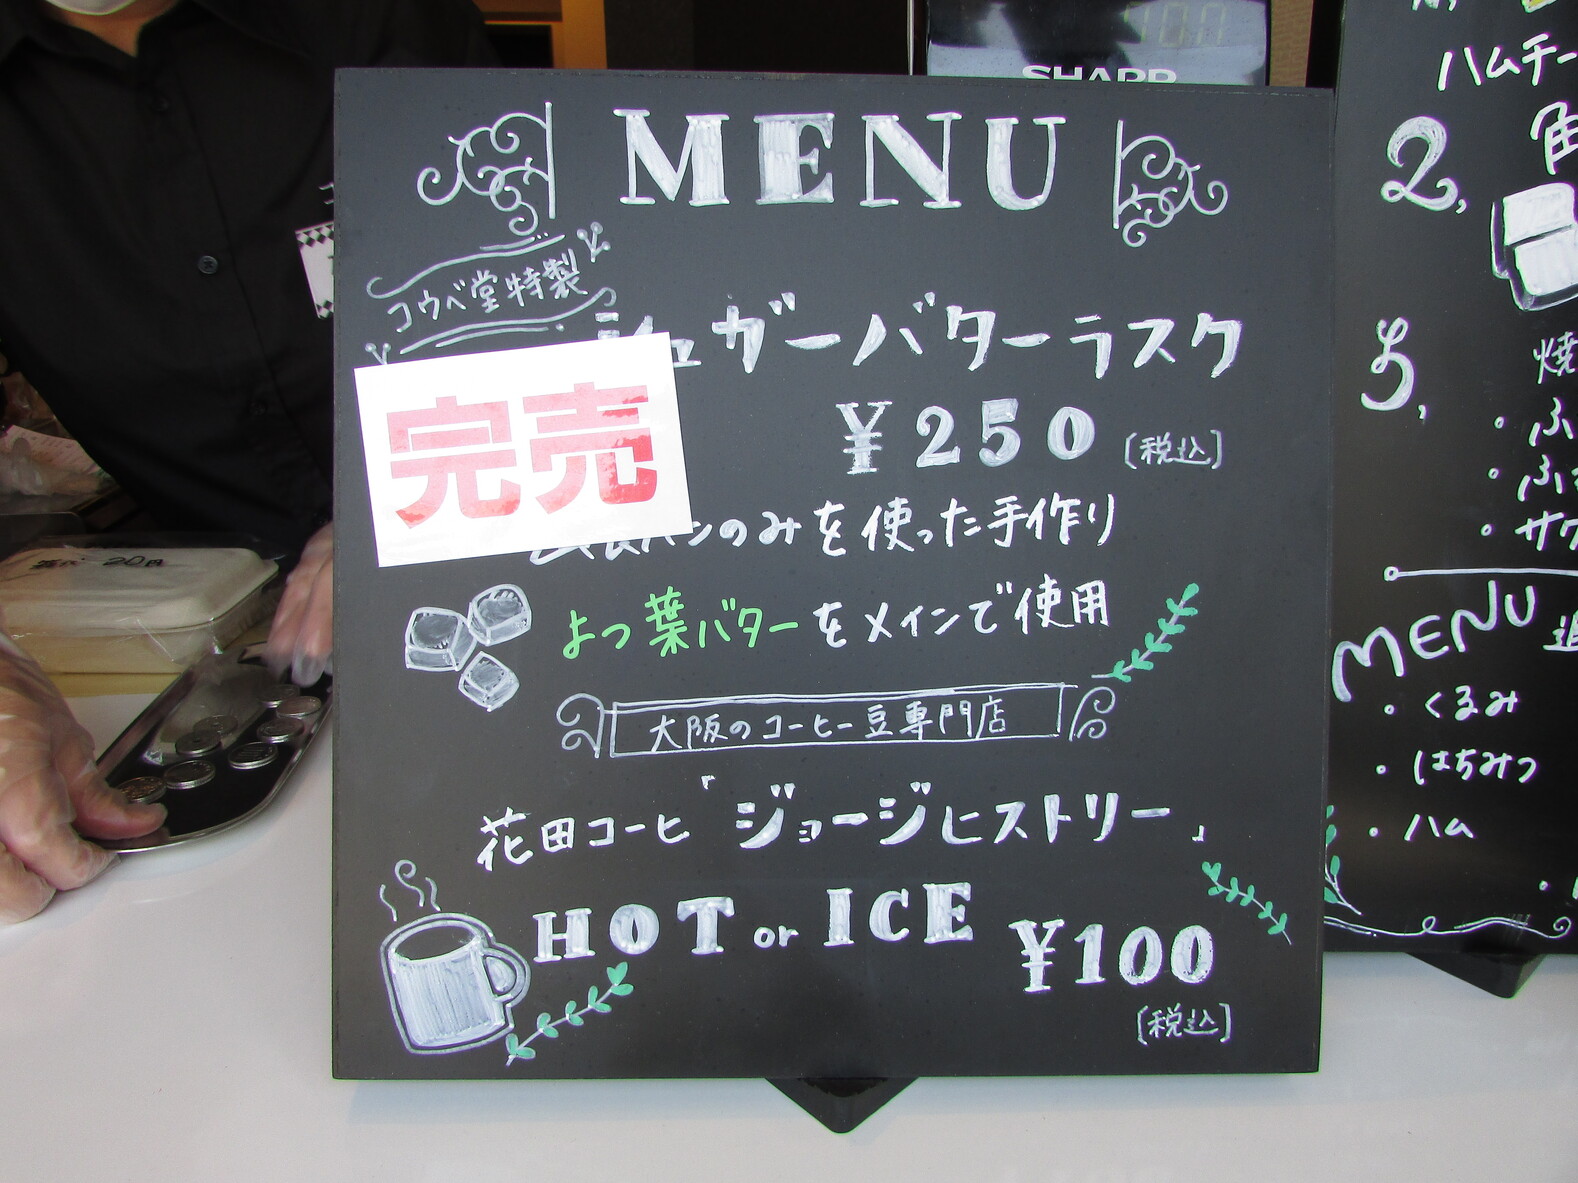 MENU
コウベ堂特製
シュガーバターラスク
完売
¥250 [税込]
パンのみを使った手作り
よつ葉バターをメインで使用
大阪のコーヒー豆専門店
花田コーヒ「ジョージヒストリー」
HOT or ICE ¥100
[税込]
SHARP
ハムチー
2,
角
5,
焼
・ふ
・ふ
・サク
MENU 追
・くるみ
・はちみつ
・ハム